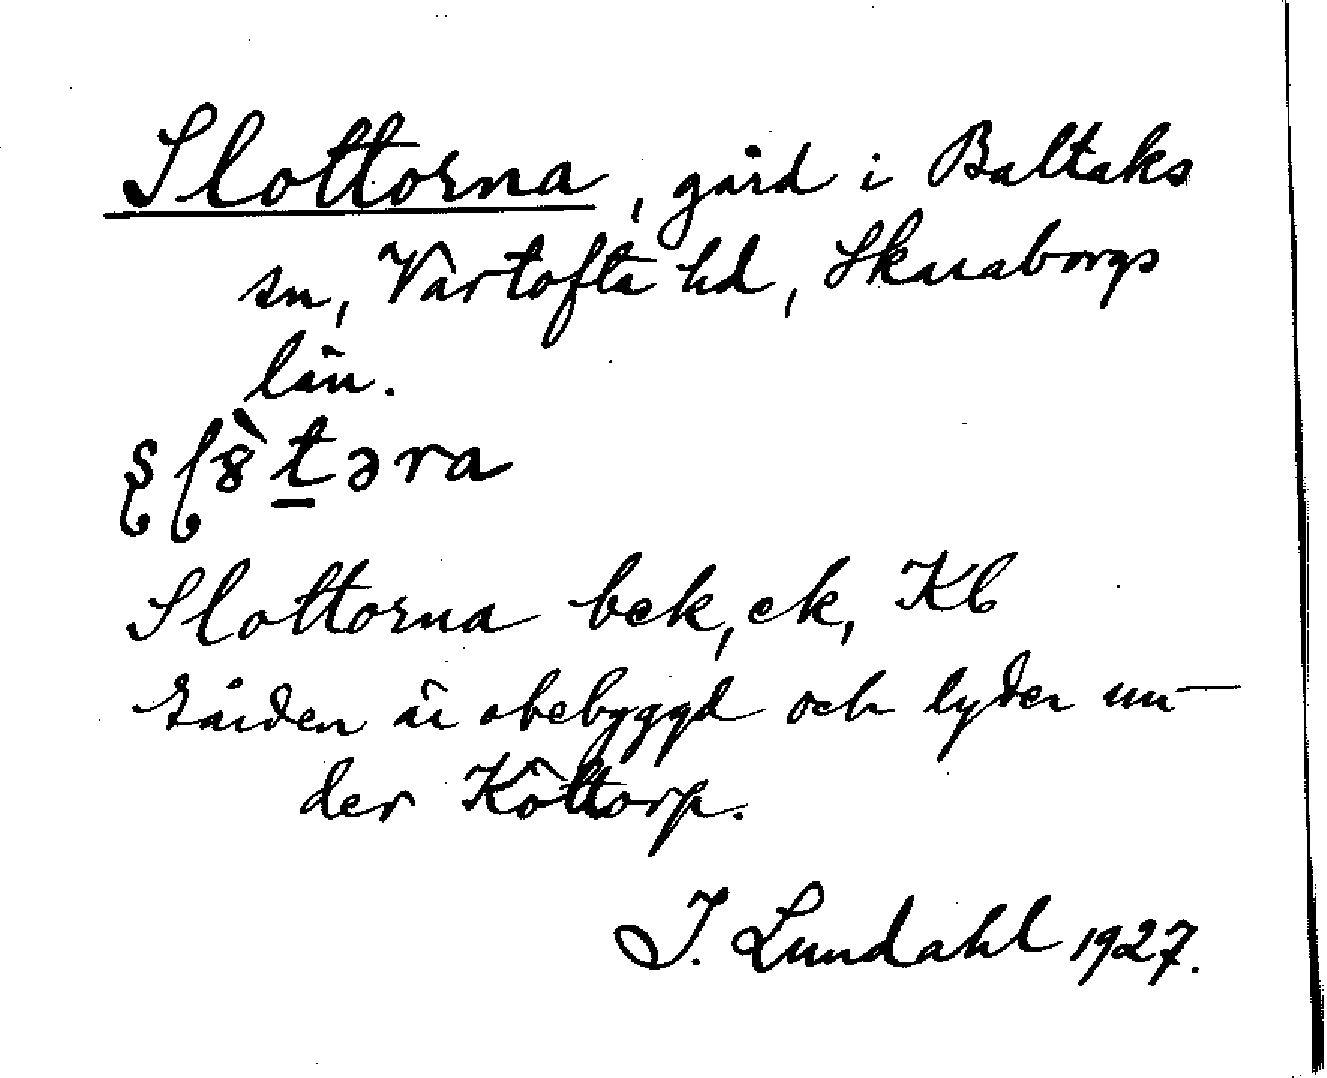 Slottorna, gård i Baltaks
sn, Vartofta hd, Skaraborgs
län.
Slottorna bek, ek, Kb
Gården är obebyggd och lyder un-
der Köttorp.
I. Lundahl 1927.